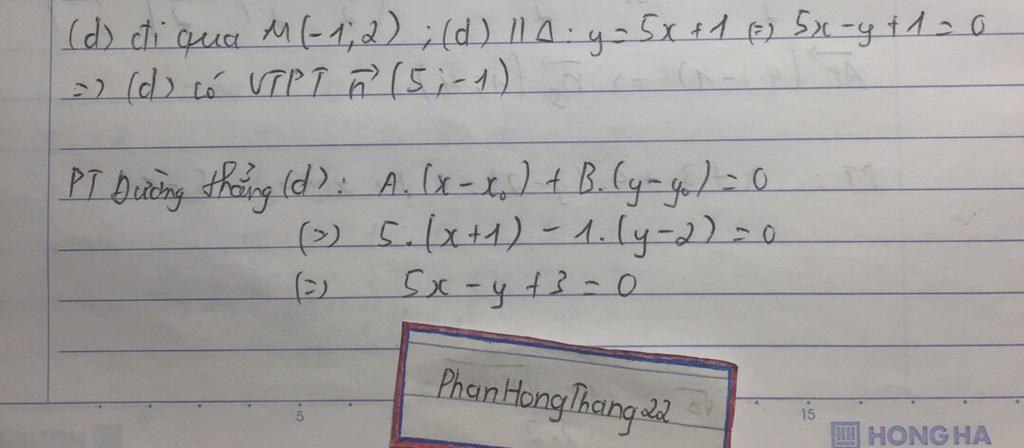 (d) đi qua M(-1;2) ; (d) // Δ: y = 5x+1 (=) 5x-y+1=0
=) (d) có VTPT n⃗ (5;-1)
PT Đường thẳng (d): A.(x-x₀) + B.(y-y₀) = 0
(=) 5.(x+1) - 1.(y-2) = 0
(=) 5x - y + 3 = 0
PhanHongThang22
5 15
HONG HA